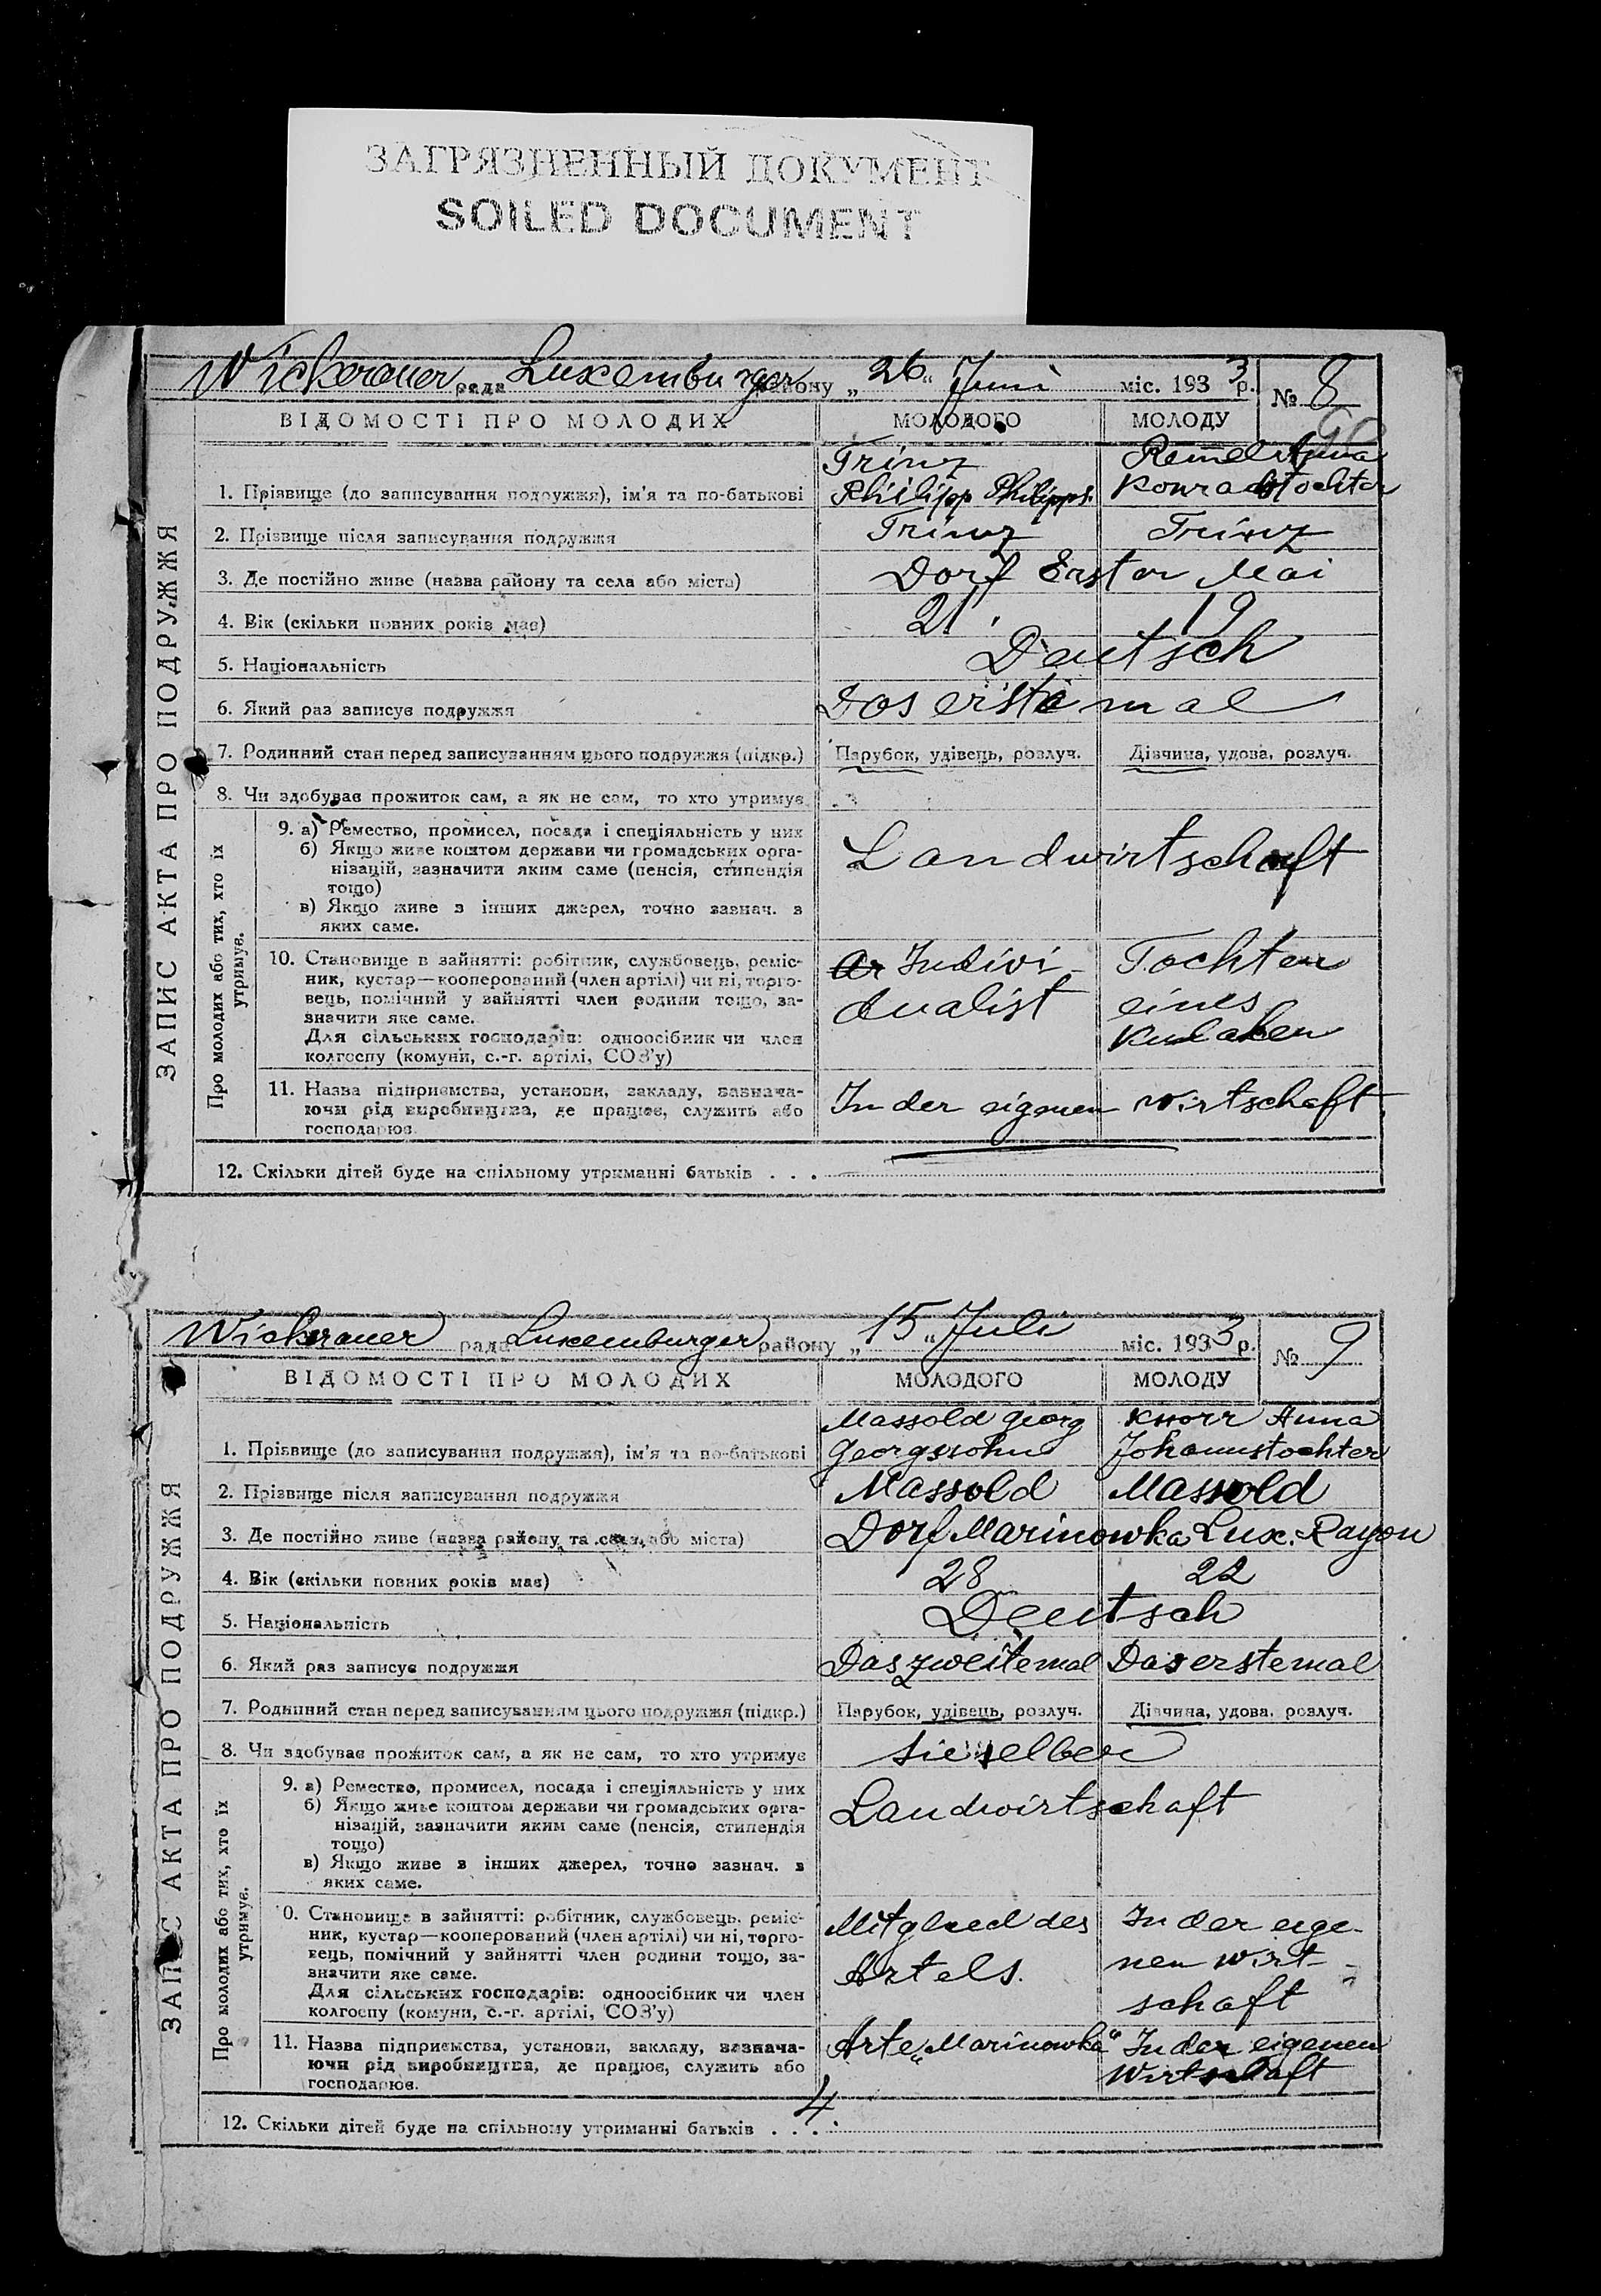 ЗАГРЯЗНЕННЫЙ ДОКУМЕНТ
SOILED DOCUMENT
Wickerauer рада Luxemburger району „26“ Juni міс. 1933 р. № 8
ВІДОМОСТІ ПРО МОЛОДИХ МОЛОДОГО МОЛОДУ
ЗАПИС АКТА ПРО ПОДРУЖЖЯ
Trinz Anna
1. Прізвище (до записування подружжя), ім'я та по-батькові Philipp Philipps. Konradstochter
2. Прізвище після записування подружжя Trinz Trinz
3. Де постійно живе (назва району та села або міста) Dorf Erster Mai
4. Вік (скільки повних років має) 21 19
5. Національність Deutsch
6. Який раз записує подружжя Das erste mal
7. Родинний стан перед записуванням цього подружжя (підкр.) Парубок, удівець, розлуч. Дівчина, удова, розлуч.
8. Чи здобуває прожиток сам, а як не сам, то хто утримує
Про молодих або тих, хто їх утримує.
9. а) Ремество, промисел, посада і спеціяльність у них
б) Якщо живе коштом держави чи громадських орга-
нізацій, зазначити яким саме (пенсія, стипендія
тощо)
в) Якщо живе з інших джерел, точно зазнач. з
яких саме.
Landwirtschaft
10. Становище в зайнятті: робітник, службовець, реміс-
ник, кустар—кооперований (член артілі) чи ні, торго-
вець, помічний у зайнятті член родини тощо, за-
значити яке саме.
Для сільських господарів: одноосібник чи член
колгоспу (комуни, с.-г. артілі, СОЗ'у)
Ar Indivi-
dualist
Tochter
eines
Kulaken
11. Назва підприємства, установи, закладу, зазнача-
ючи рід виробництва, де працює, служить або
господарює.
In der eigenen Wirtschaft
12. Скільки дітей буде на спільному утриманні батьків . . .
Wickerauer рада Luxemburger району „15“ Juli міс. 1933 р. № 9
ВІДОМОСТІ ПРО МОЛОДИХ МОЛОДОГО МОЛОДУ
ЗАПИС АКТА ПРО ПОДРУЖЖЯ
Massold Georg Knorr Anna
1. Прізвище (до записування подружжя), ім'я та по-батькові Georgssohn Johannstochter
2. Прізвище після записування подружжя Massold Massold
3. Де постійно живе (назва району та села або міста) Dorf Marinowka Lux. Rayon
4. Вік (скільки повних років має) 28 22
5. Національність Deutsch
6. Який раз записує подружжя Das zweitemal Das erstemal
7. Родинний стан перед записуванням цього подружжя (підкр.) Парубок, удівець, розлуч. Дівчина, удова, розлуч.
8. Чи здобуває прожиток сам, а як не сам, то хто утримує sie selber
Про молодих або тих, хто їх утримує.
9. а) Ремество, промисел, посада і спеціяльність у них
б) Якщо живе коштом держави чи громадських орга-
нізацій, зазначити яким саме (пенсія, стипендія
тощо)
в) Якщо живе з інших джерел, точно зазнач. з
яких саме.
Landwirtschaft
0. Становище в зайнятті: робітник, службовець, реміс-
ник, кустар—кооперований (член артілі) чи ні, торго-
вець, помічний у зайнятті член родини тощо, за-
значити яке саме.
Для сільських господарів: одноосібник чи член
колгоспу (комуни, с.-г. артілі, СОЗ'у)
Mitglied des
Artels.
In der eige-
nen Wirt-
schaft
11. Назва підприємства, установи, закладу, зазнача-
ючи рід виробництва, де працює, служить або
господарює.
Arte „Marinowka“
In der eigenen
Wirtschaft
12. Скільки дітей буде на спільному утриманні батьків . . . 4